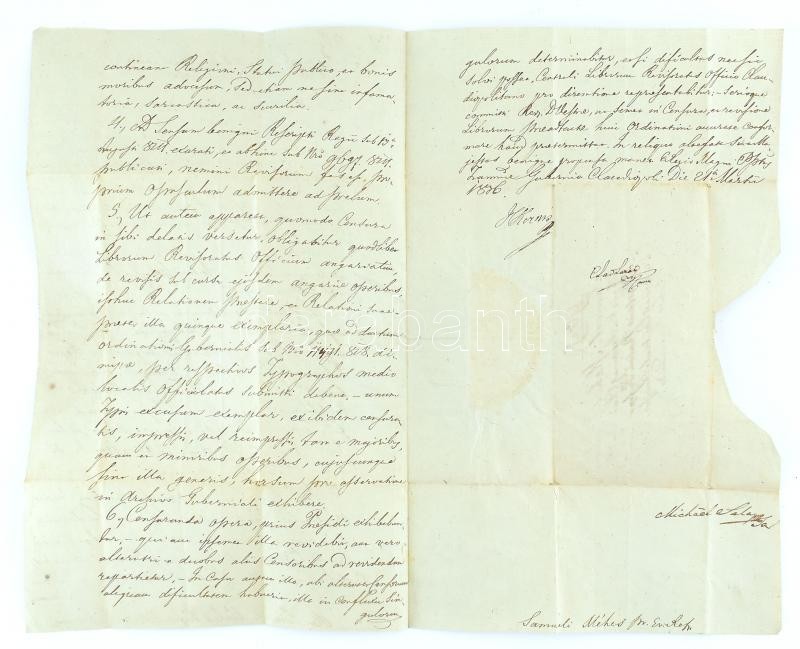 continean Religioni, Statui publico, ac bonis
moribus adversum, sed etiam ne sine infama-
toria, sarcastica, ac scurrilia.
4., Ad Sensum benigni Rescripti Regii sub 13a
Augusti 821. exarati, ac abhinc sub Nro 9697. 821.
publicati, nemini Revisorum fas est, pro-
prium opusculum admittere ad prelum.
5., Ut autem appareat, quomodo Censura
in sibi delatis versetur, obligabitur quodlibet
Librorum Revisoratus Officium angariatim,
de revisis sub cursu ejusdem angariae operibus
isthuc Relationem praestare, ac Relationi suae
praeter illa quinque exemplaria, quae ad ductum
ordinationis Gubernialis sub Nro 818. di-
missae, per respectivos Typographos medio
localis Officiolatus submitti debent, – unum
Typis excusum exemplar, exibidem censura-
tis, impressis, vel reimpressis tam e majoribus,
quam e minoribus operibus, cujuscunque
sint illa generis, horsum pro asservatione
in Archivo Guberniali exhibere.
6., Censuranda opera, prius Praesidi exhibebun-
tur, – qui aut ipsemet illa revidebit, aut vero
alterutri a duobus aliis Censoribus ad revidendum
repartietur, – In Casu autem illo, ubi alteruter Censorum
aliquam dificultatem habuerit, illa in Confluxu Sin-
gulorum
gulorum determinabitur, et si dificultas nec sic
solvi posset, Centrali Librorum Revisoratus Officio Clau-
diopolitano pro directione repraesentabitur; – Serioque
committi Reg. D. Vestrae, ac semet in Censura, ac revisione
Librorum praeattactae huic Ordinationi accurate confor-
mare haud praetermittat. In reliquo altefata Sua Ma-
jestas benigne propensa manet. E Regio Magni Pptus
Tranniae Gubernio Claudiopoli Die 21a Martii
1836.
Michael Salamon
Samueli Méhes Pr. Ev. Ref.